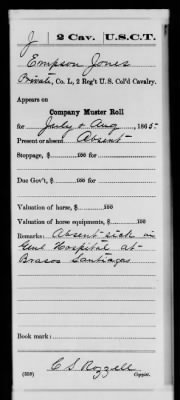 J | 2 Cav. | U.S.C.T.
Empson Jones
Private, Co. L, 2 Reg't U. S. Col'd Cavalry.
Appears on
Company Muster Roll
for July & Aug, 1865.
Present or absent Absent
Stoppage, $ 100 for
Due Gov't, $ 100 for
Valuation of horse, $ 100
Valuation of horse equipments, $ 100
Remarks: Absent sick in
Genl Hospital at
Brasos Santiagos
Book mark:
C S Rozzell
(358) Copyist.